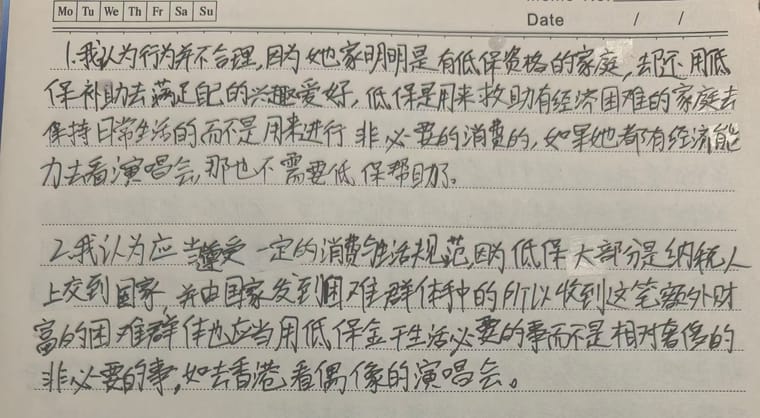 Mo Tu We Th Fr Sa Su
Date / /
1.我认为行为并不合理,因为她家明明是有低保资格的家庭,却还用低
保补助去满足自己的兴趣爱好,低保是用来救助有经济困难的家庭去
保持日常生活的而不是用来进行非必要的消费的,如果她都有经济能
力去看演唱会,那也不需要低保帮助了。
2.我认为应当遵受一定的消费与生活规范,因为低保大部分是纳税人
上交到国家,并由国家发到困难群体手中的所以收到这笔额外财
富的困难群体也应当用低保金干生活必要的事而不是相对奢侈的
非必要的事,如去香港看偶像的演唱会。